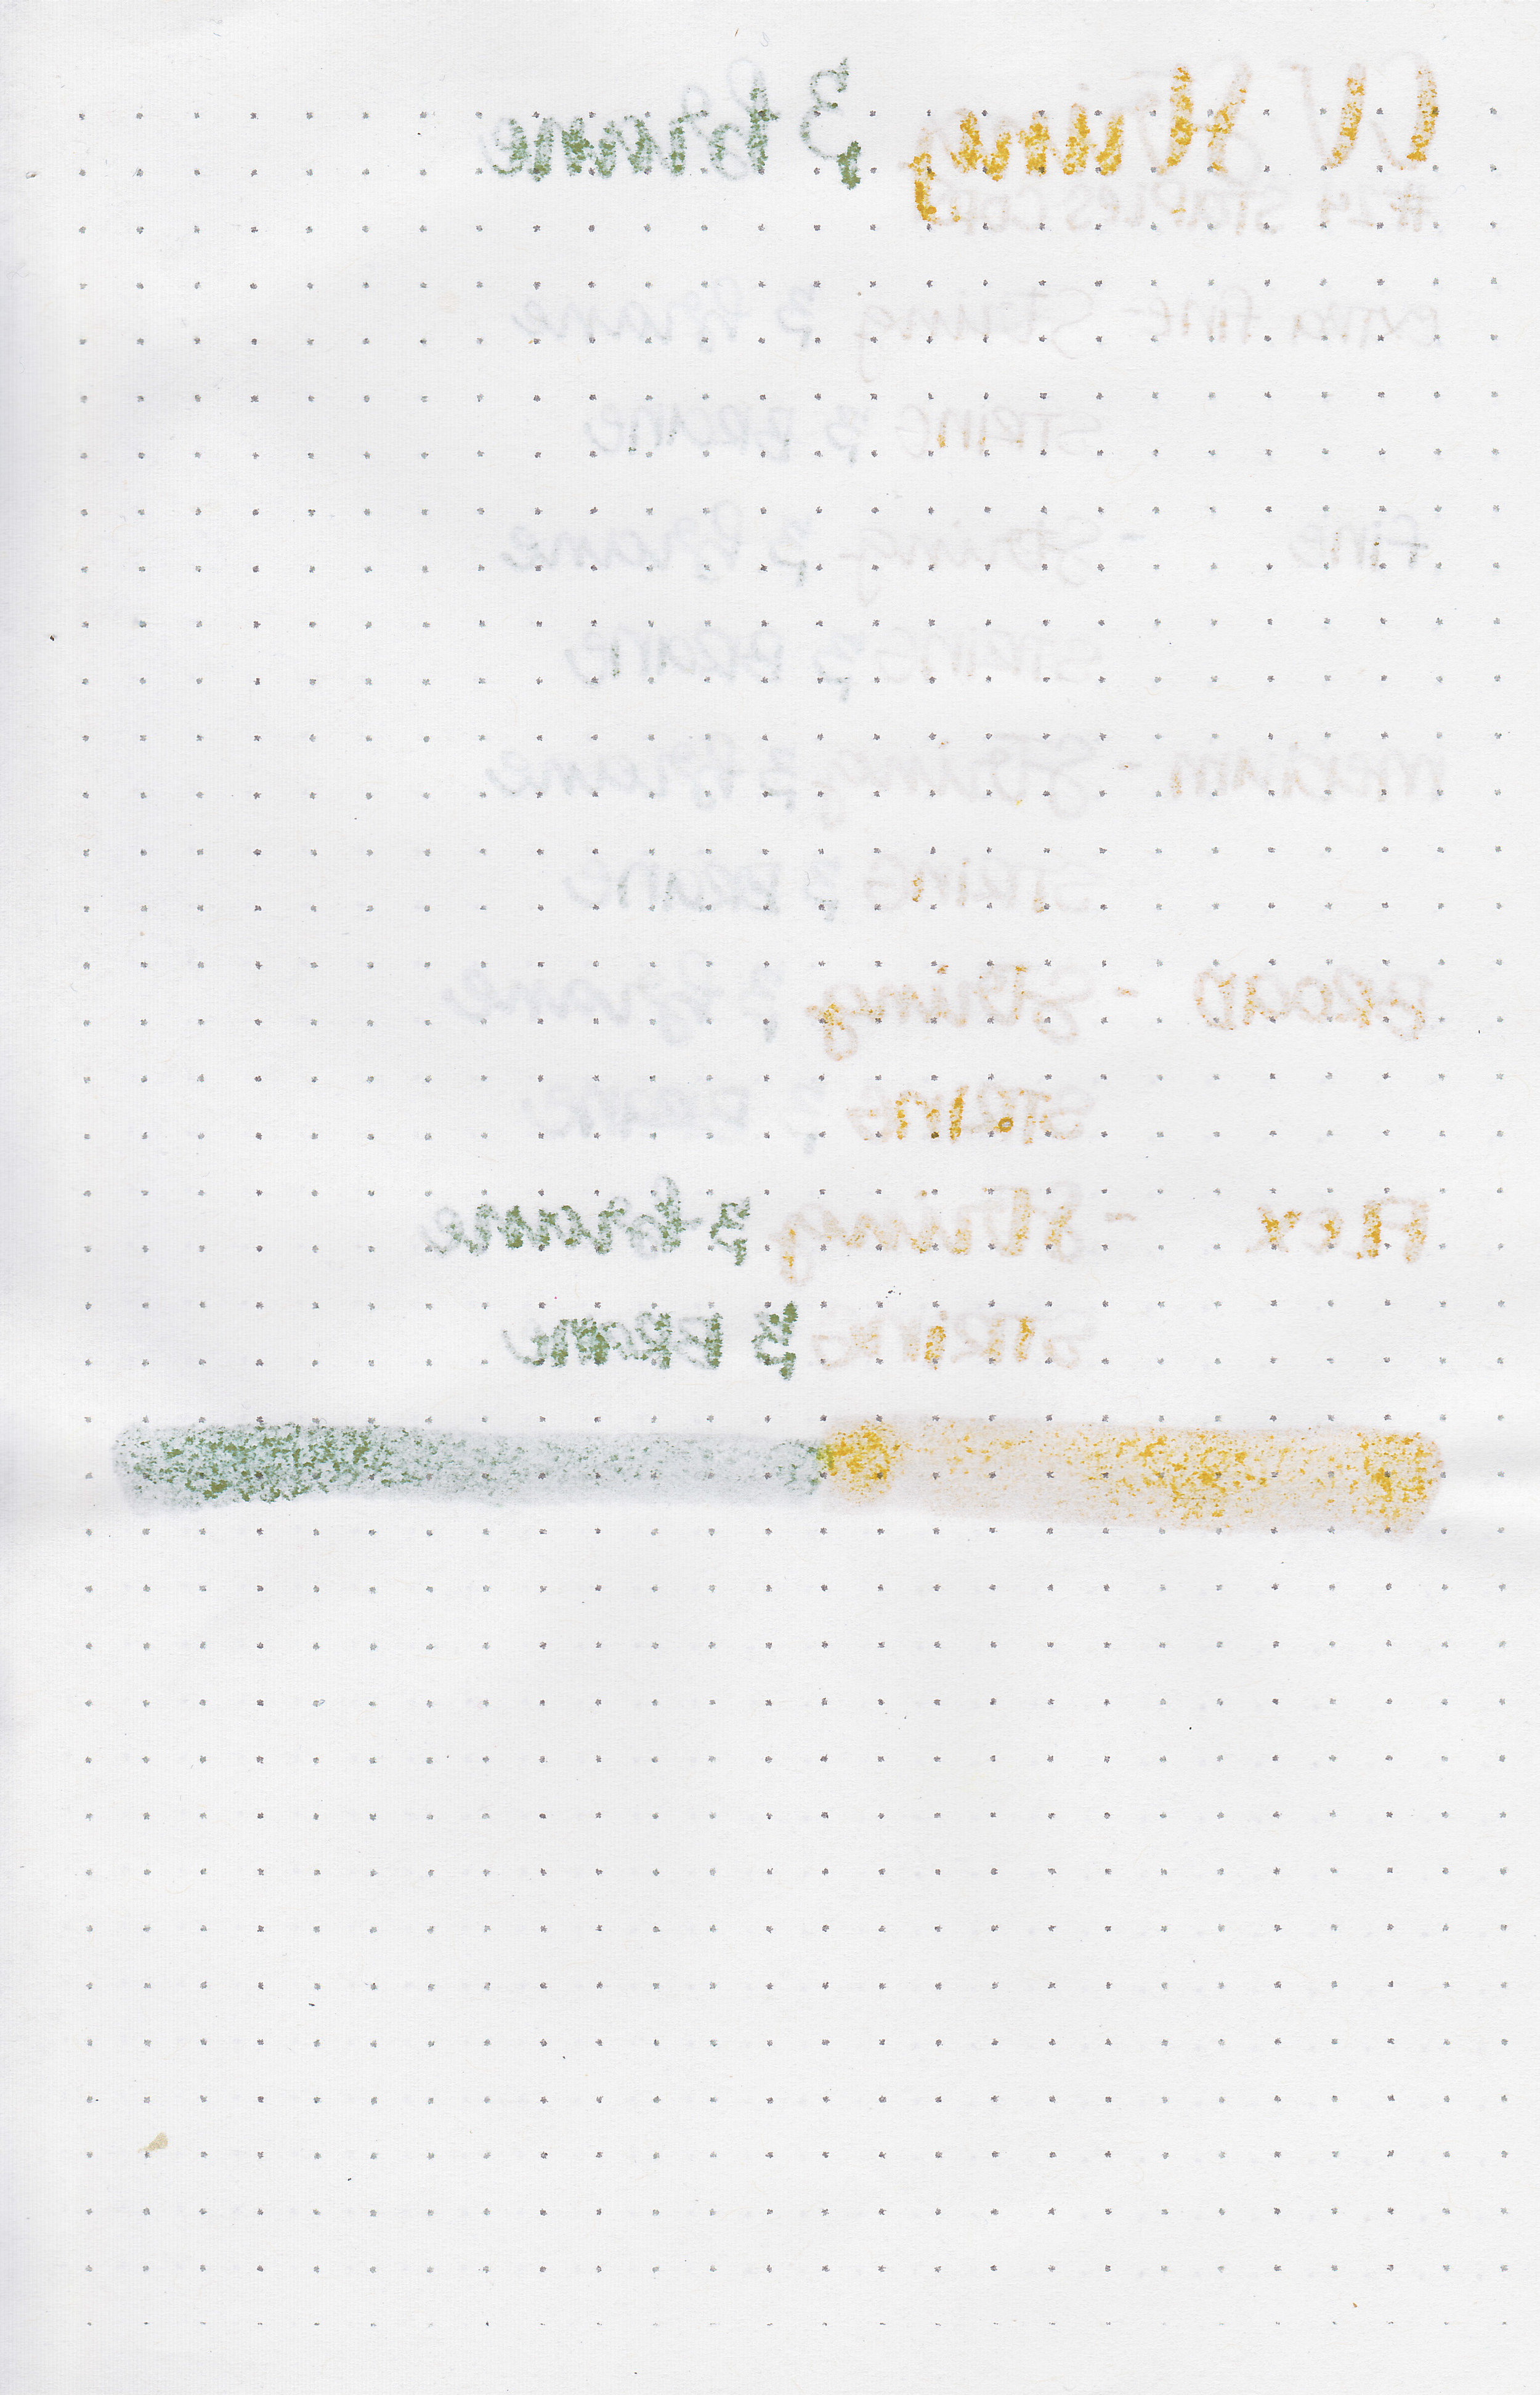 CV String & Brane
#24 STAPLES COPY
EXTRA FINE - String & Brane
STRING & BRANE
FINE - String & Brane
STRING & BRANE
MEDIUM - String & Brane
STRING & BRANE
BROAD - String & Brane
STRING & BRANE
FLEX - String & Brane
STRING & BRANE